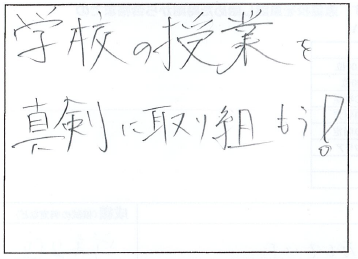 学校の授業を
真剣に取り組もう!